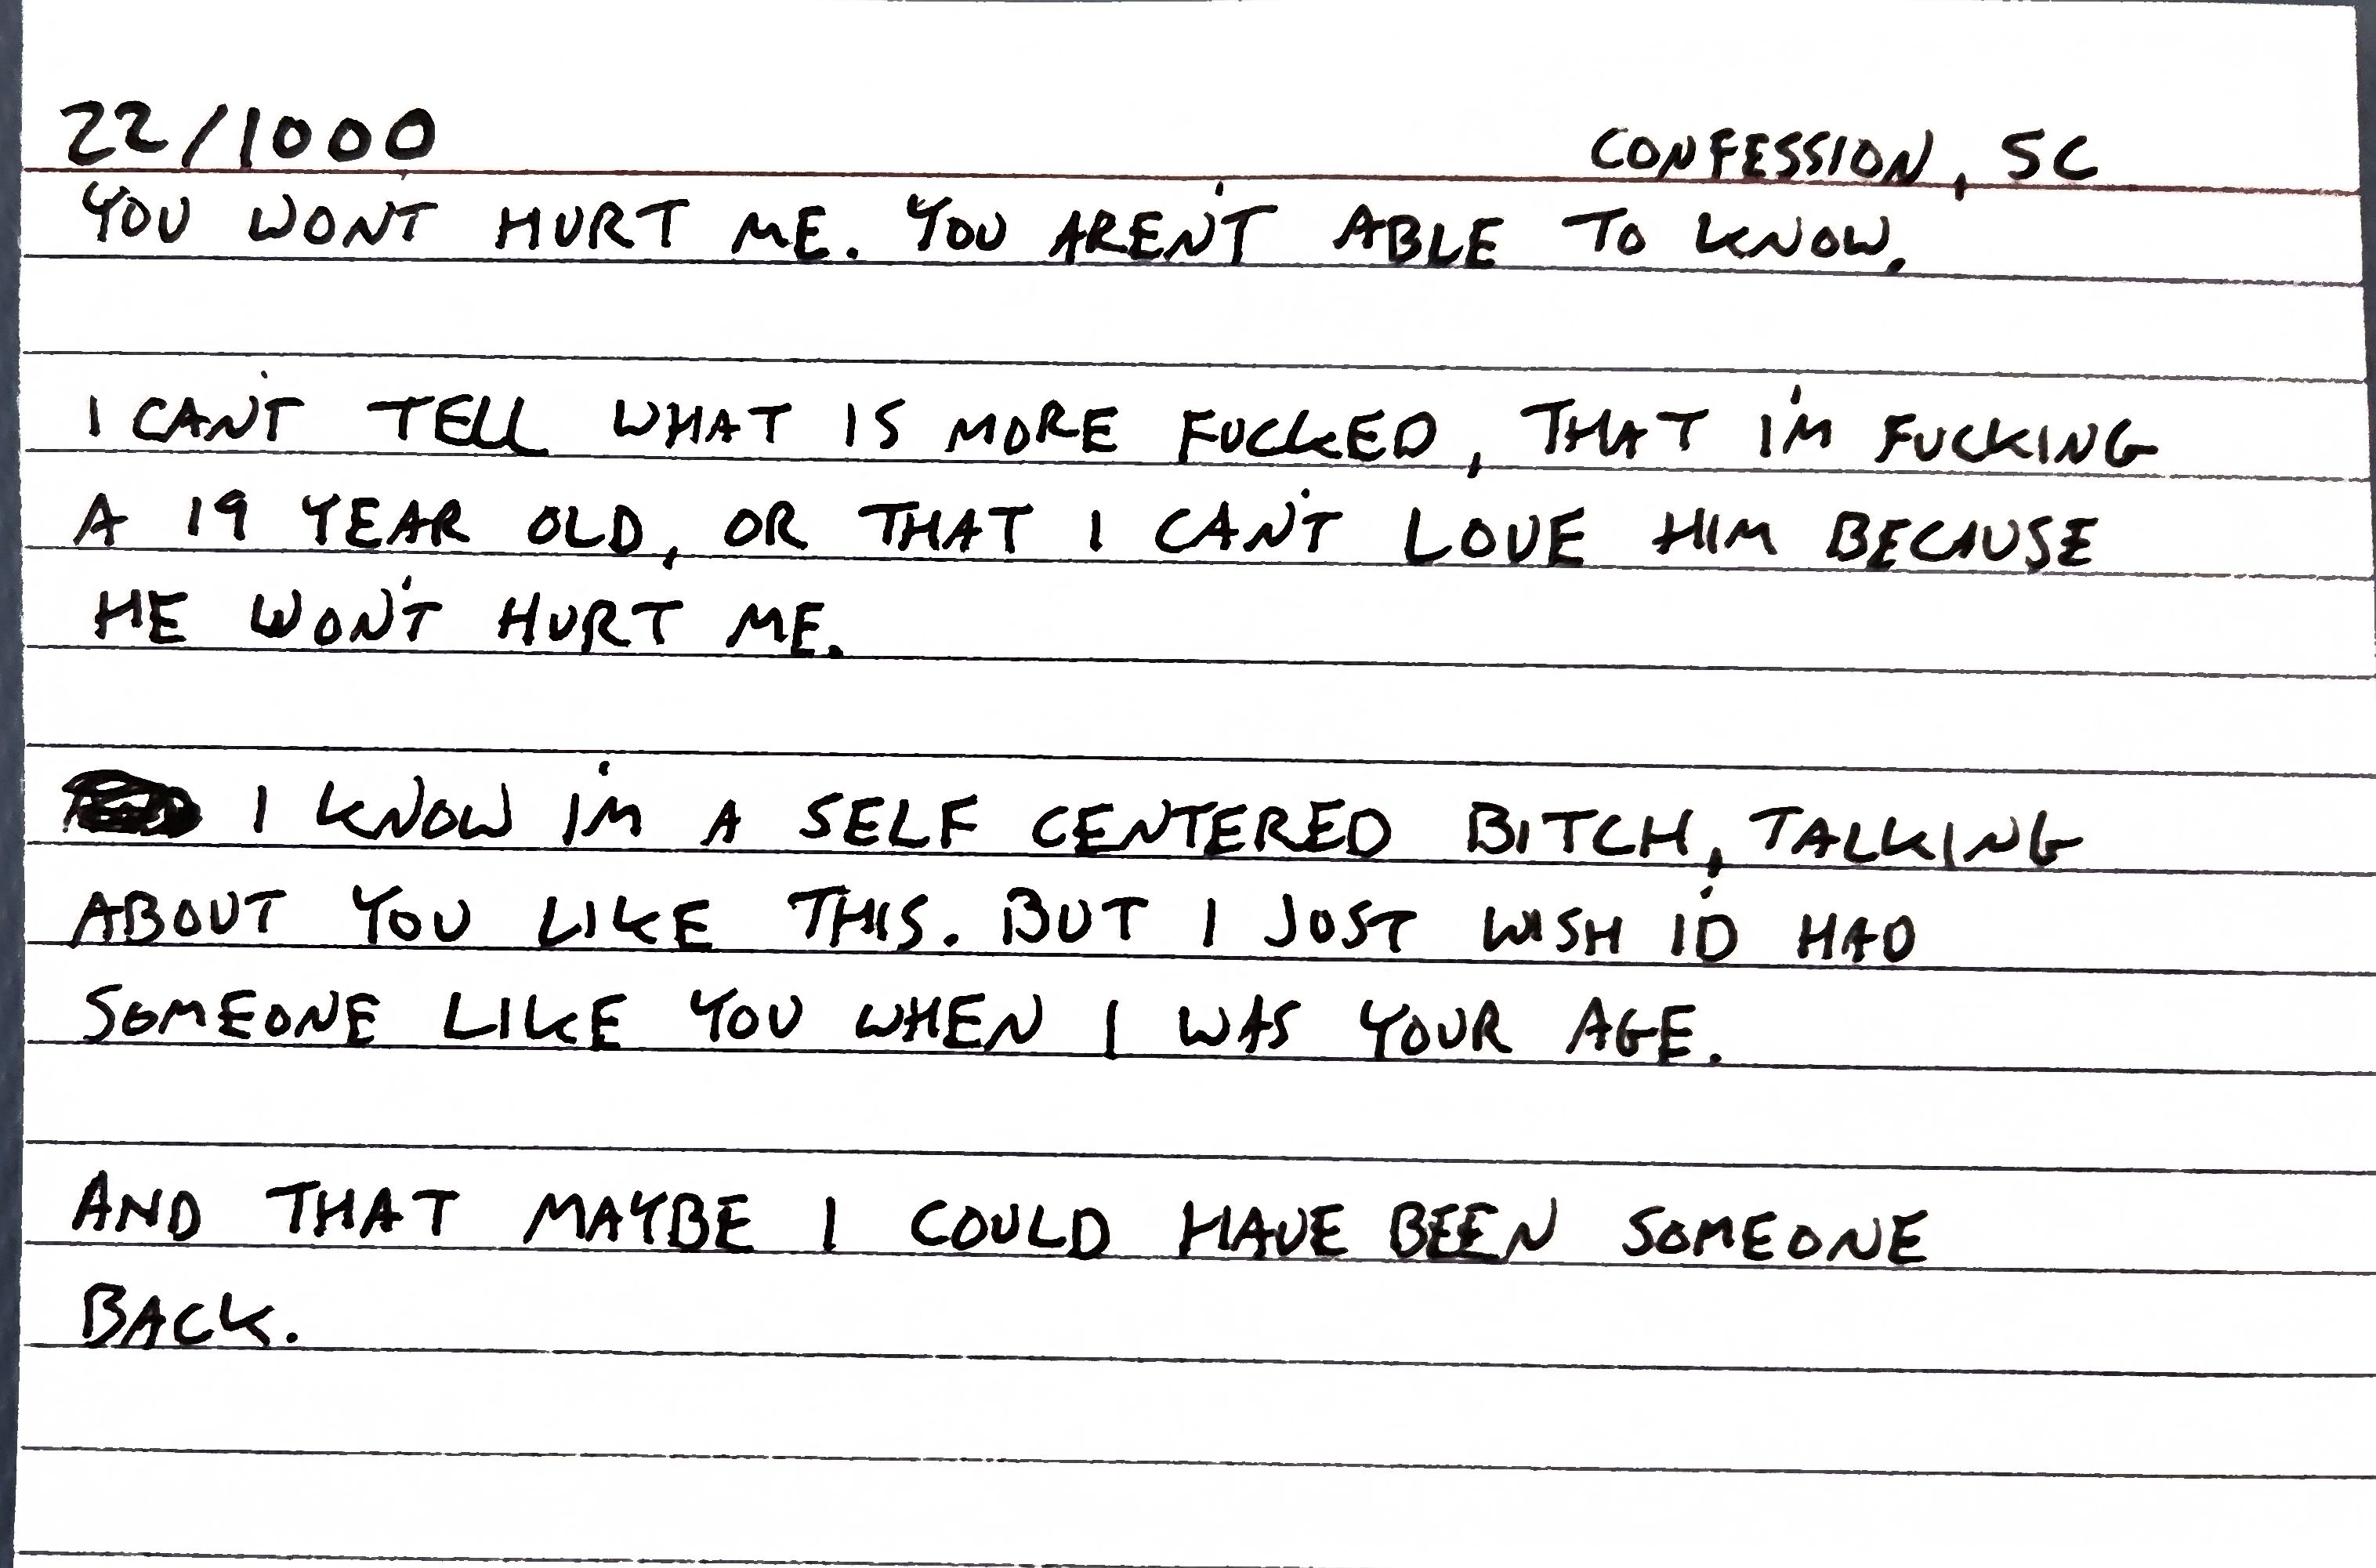 22/1000
CONFESSION, SC
YOU WON'T HURT ME. YOU AREN'T ABLE TO KNOW.
I CAN'T TELL WHAT IS MORE FUCKED, THAT I'M FUCKING
A 19 YEAR OLD, OR THAT I CAN'T LOVE HIM BECAUSE
HE WON'T HURT ME.
I KNOW I'M A SELF CENTERED BITCH, TALKING
ABOUT YOU LIKE THIS. BUT I JUST WISH I'D HAD
SOMEONE LIKE YOU WHEN I WAS YOUR AGE.
AND THAT MAYBE I COULD HAVE BEEN SOMEONE
BACK.